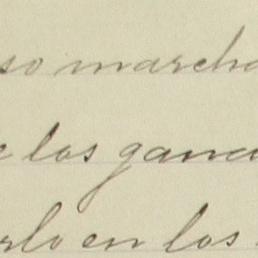 so marcha
e los gana
rlo en los